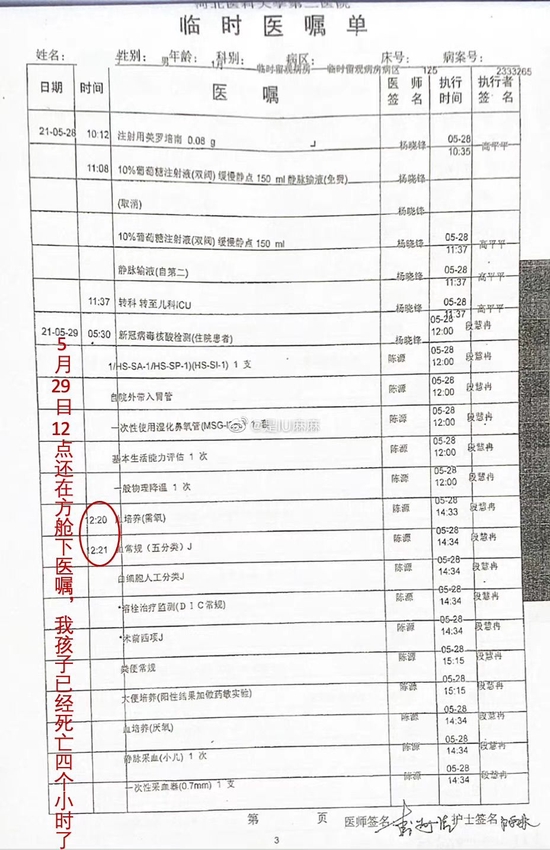 河北医科大学第二医院
临时医嘱单
姓名： 性别：男 年龄： 科别：临时留观病房 病区：临时留观病房病区 床号：125 病案号：2333265
日期 时间 医嘱 医师签名 执行时间 执行者签名
21-05-28 10:12 注射用美罗培南 0.08 g 杨晓锋 05-28 10:35 高平平
11:08 10%葡萄糖注射液(双阀) 缓慢静点 150 ml 静脉输液(免费)
(取消) 杨晓锋
10%葡萄糖注射液(双阀) 缓慢静点 150 ml 杨晓锋 05-28 11:37 高平平
静脉输液(自第二) 杨晓锋 05-28 11:37 高平平
11:37 转科 转至儿科ICU 杨晓锋 05-28 11:37 高平平
21-05-29 05:30 新冠病毒核酸检测(住院患者) 杨晓锋 05-28 12:00 段慧冉
1/HS-SA-1/HS-SP-1)(HS-SI-1) 1 支 陈源 05-28 12:00 段慧冉
自院外带入胃管 陈源 05-28 12:00 段慧冉
一次性使用湿化鼻氧管(MSG- 陈源 05-28 12:00 段慧冉
@是IU麻麻
基本生活能力评估 1 次 陈源 05-28 12:00 段慧冉
一般物理降温 1 次 陈源 05-28 12:00 段慧冉
12:20 血培养(需氧) 陈源 05-28 14:33 段慧冉
12:21 血常规（五分类）J 陈源 05-28 14:34 段慧冉
白细胞人工分类J 陈源 05-28 14:34 段慧冉
*溶栓治疗监测(DIC常规) 陈源 05-28 14:34 段慧冉
*术前四项J 陈源 05-28 14:34 段慧冉
粪便常规 陈源 05-28 15:15 段慧冉
大便培养(阳性结果加做药敏实验) 陈源 05-28 15:15 段慧冉
血培养(厌氧) 陈源 05-28 14:34 段慧冉
静脉采血(小儿) 1 次 陈源 05-28 14:34 段慧冉
一次性采血器(0.7mm) 1 支 陈源 05-28 14:34 段慧冉
第 页 医师签名 护士签名
3
5月29日12点还在方舱下医嘱，我孩子已经死亡四个小时了